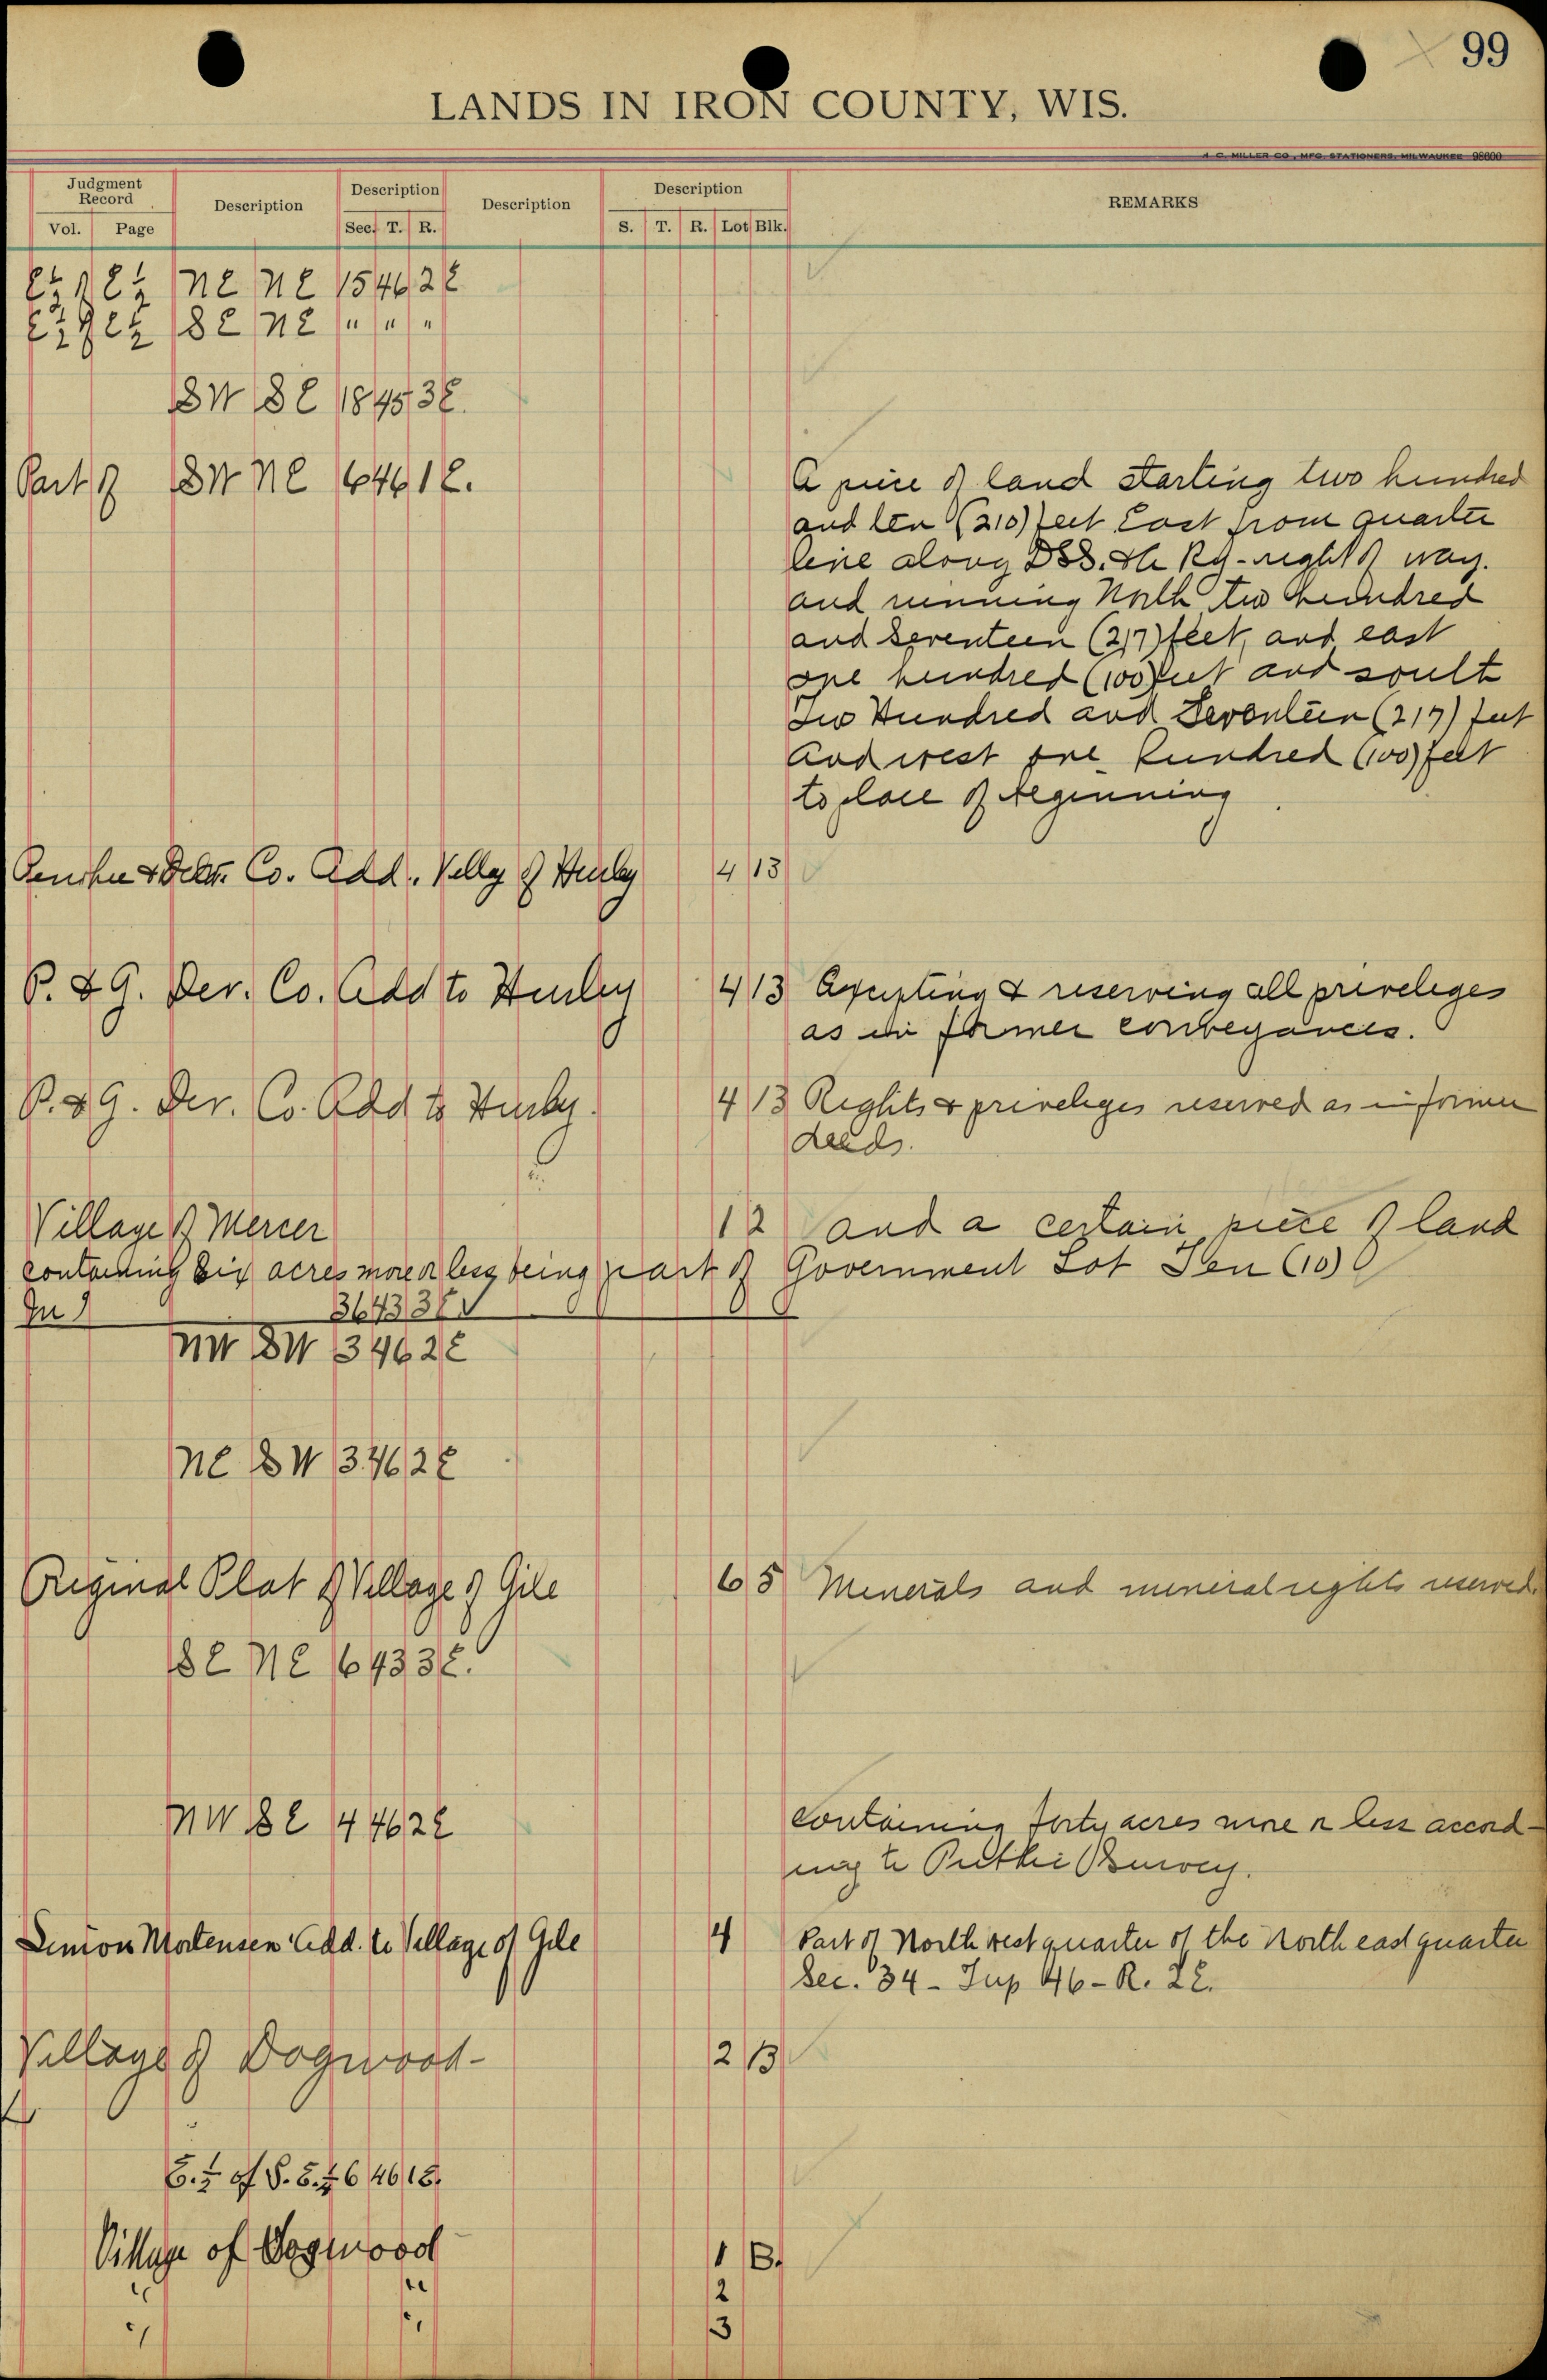 99
LANDS IN IRON COUNTY, WIS.
H. C. MILLER CO., MFG. STATIONERS, MILWAUKEE 98600
Judgment Record Description Description Description Description REMARKS
Vol. Page Sec. T. R. S. T. R. Lot Blk.
E½ of E½ NE NE 15 46 2E
E½ of E½ SE NE " " "
SW SE 18 45 3E.
Part of SW NE 6 46 1E. A piece of land starting two hundred
and ten (210) feet East from quarter
line along D.S.S. & A Ry - right of way.
and running North two hundred
and seventeen (217) feet, and east
one hundred (100) feet and south
Two Hundred and Seventeen (217) feet
and west one hundred (100) feet
to place of beginning
Co. Add. of Hurley 4 13
P. & G. Dev. Co. Add to Hurley 4 13 Excepting & reserving all priveleges
as in former conveyances.
P. & G. Dev. Co. Add to Hurley. 4 13 Rights & priveleges reserved as in former
deeds.
Village of Mercer 12 and a certain piece of land
containing Six acres more or less being part of Government Lot Ten (10)
In 36 43 3E
NW SW 3 46 2E
NE SW 3 46 2E
Original Plat of Village of Gile 6 5 Minerals and mineral rights reserved.
SE NE 6 43 3E.
NW SE 4 46 2E Containing forty acres more or less accord-
ing to Public Survey.
Simon Mortensen Add. to Village of Gile 4 Part of North west quarter of the North east quarter
Sec. 34 - Twp 46 - R. 2E.
Village of Dogwood - 2 B
E.½ of S.E.¼ 6 46 1E.
Village of Dogwood 1 B.
" " 2
" " 3